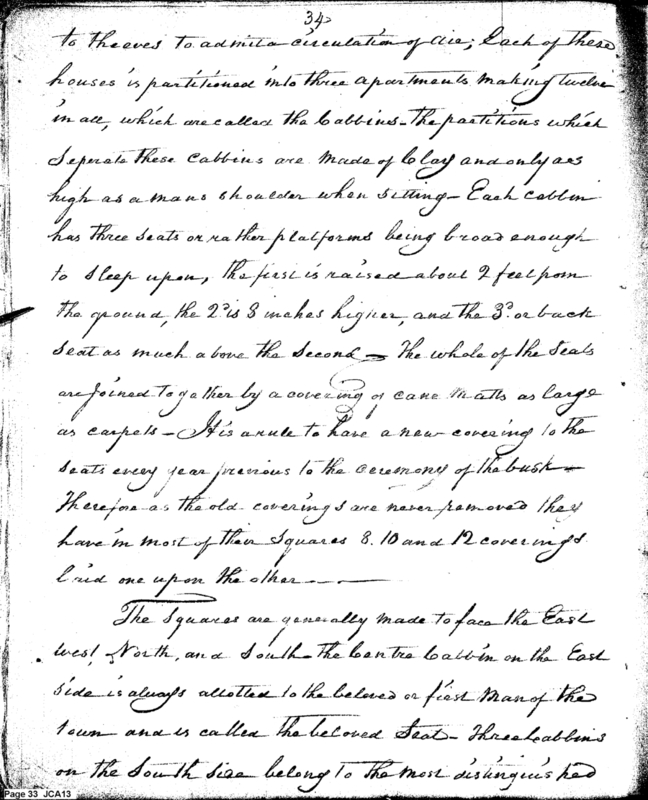 34
to the eves to admit a circulation of air; Each of these
houses is partitioned into three apartments making twelve
in all, which are called the Cabbins - the partitions which
Seperate these cabbins are made of Clay and only as
high as a mans shoulder when sitting - Each cabbin
has three seats or rather platforms being broad enough
to sleep upon, the first is raised about 2 feet from
the ground, the 2d is 8 inches higher, and the 3d or back
seat as much above the second - The whole of the seats
are joined together by a covering of cane matts as large
as carpets - It is a rule to have a new covering to the
seats every year previous to the ceremony of the busk -
Therefore as the old coverings are never removed they
have in most of their squares 8. 10 and 12 coverings
laid one upon the other - - -
The Squares are generally made to face the East
West, North, and South - the Centre Cabbin on the East
side is always allotted to the beloved or first Man of the
town and is called the beloved Seat - three Cabbins
on the South side belong to the most distinguished
Page 33 JCA13